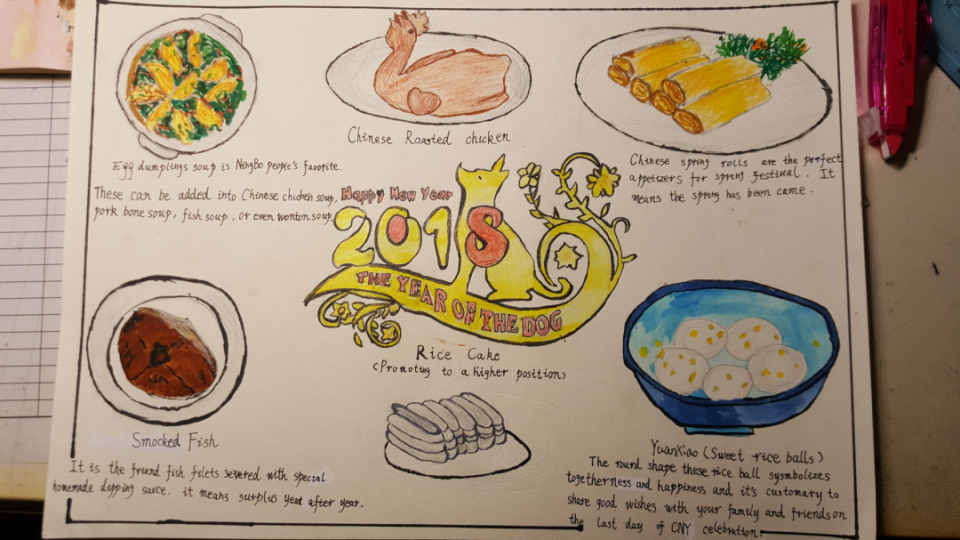 Chinese Roasted chicken
Egg dumplings soup is NingBo people's favorite.
These can be added into Chinese chicken soup,
pork bone soup, fish soup, or even wonton soup.
Chinese spring rolls are the perfect
appetizers for spring festival. It
means the spring has been came.
Happy New Year
2018
THE YEAR OF THE DOG
Rice Cake
(Promoting to a higher position)
Smocked Fish
It is the friend fish filets severed with special
homemade depping sauce. it means surplus year after year.
YuanXiao (Sweet rice balls)
The round shape these rice ball sysmbolizes
togetherness and happiness and it's customary to
share good wishes with your family and friends on
the last day of CNY celebration.